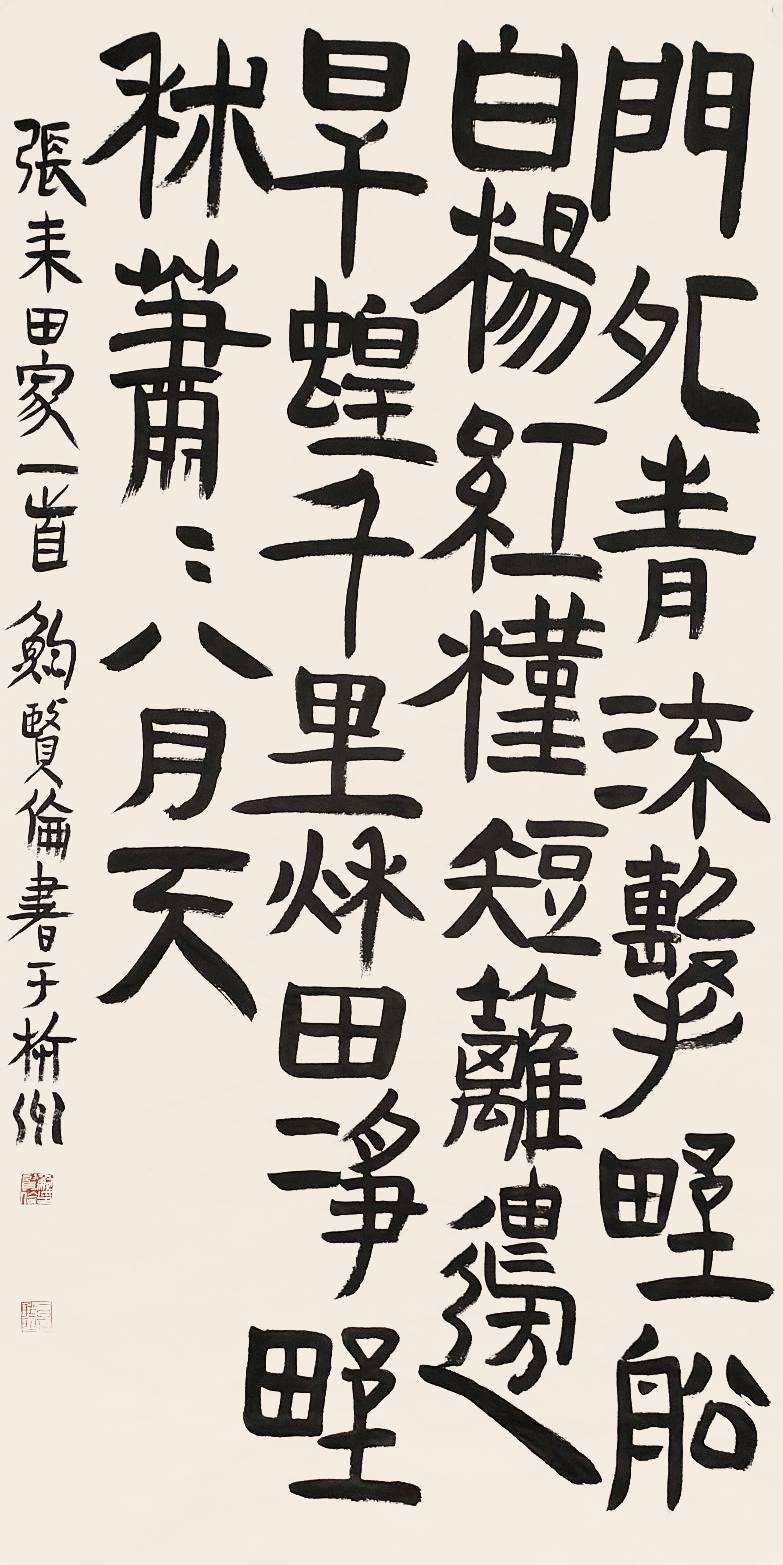 門外青流擊野船
白楊紅槿短蘺邊
旱蝗千里秌田淨野
秫蕭〻八月天
張耒田家一首 鮑賢倫書于杭州